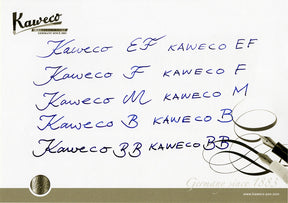 Kaweco
GERMANY SINCE 1883
Kaweco EF KAWECO EF
Kaweco F KAWECO F
Kaweco M KAWECO M
Kaweco B KAWECO B
Kaweco BB KAWECO BB
Germany since 1883
www.kaweco-pen.com